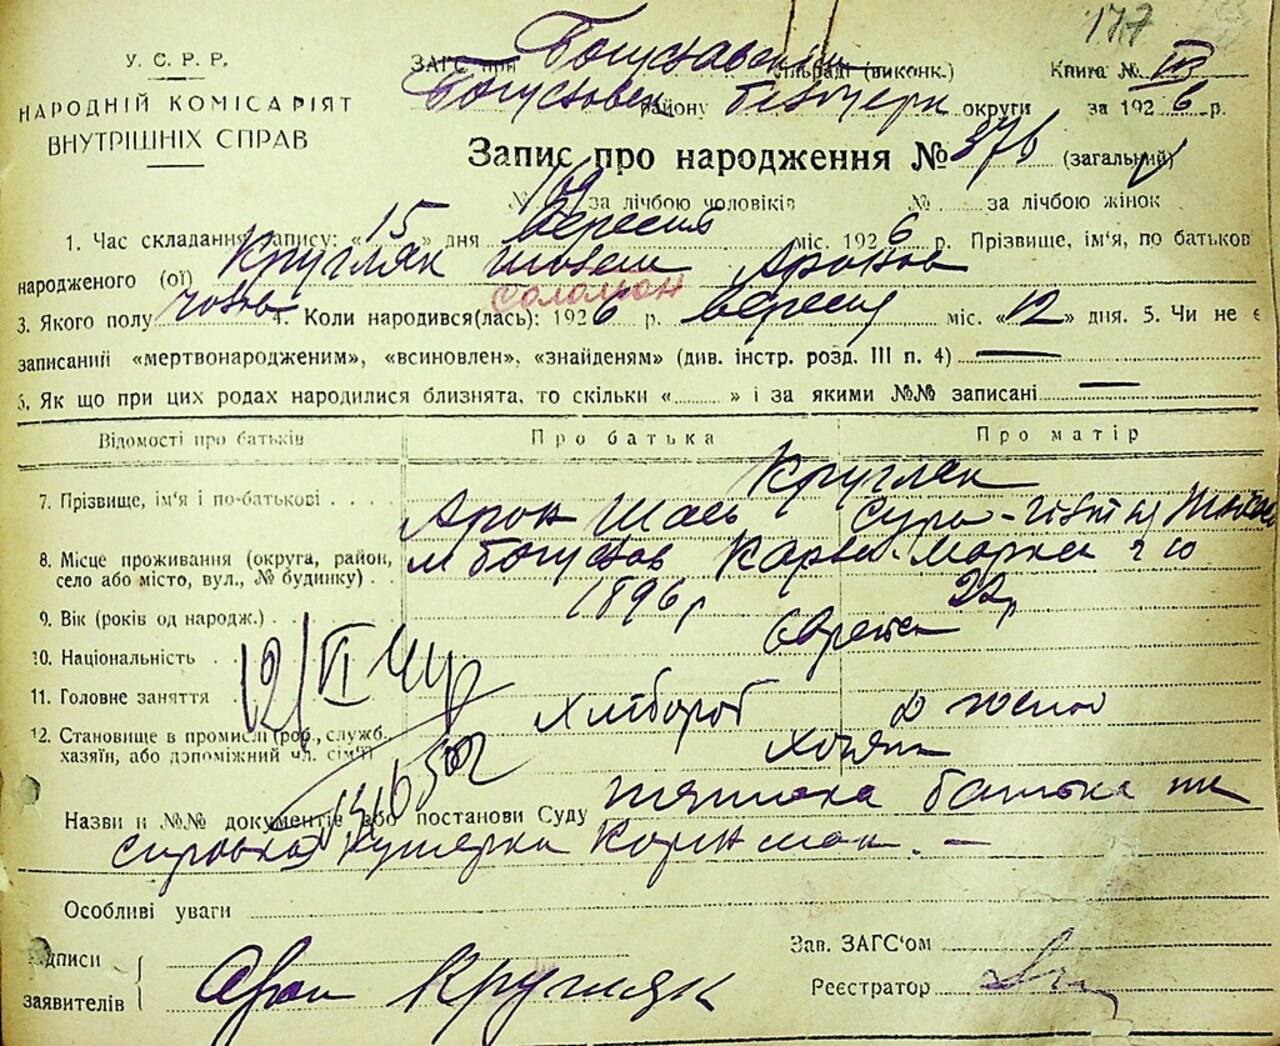 177
У. С. Р. Р.
НАРОДНІЙ КОМІСАРІЯТ
ВНУТРІШНІХ СПРАВ
ЗАГС при Богуславськім сільраді (виконк.) Книга № III
Богуславськ району Білоцерк округи за 1926 р.
Запис про народження № 376 (загальний)
№ 169 за лічбою чоловіків № за лічбою жінок
1. Час складання запису: «15» дня вересня міс. 1926 р. Прізвище, ім'я, по батькові
народженого (ої) Кругляк Шолем Аронов
Соломон
3. Якого полу чолов 4. Коли народився(лась): 1926 р. вересня міс. «12» дня. 5. Чи не є
записаний «мертвонародженим», «всиновлен», «знайденям» (див. інстр. розд. III п. 4) —
6. Як що при цих родах народилися близнята, то скільки «........» і за якими №№ записані —
Відомості про батьків Про батька Про матір
Кругляк
7. Прізвище, ім'я і по-батькові Арон Сура
8. Місце проживання (округа, район, село або місто, вул., № будинку) м Богуслав Карла-Маркса
9. Вік (років од народж.) 1896 р 22 р
10. Національність євреї
11. Головне заняття хлібороб
12. Становище в промислі (роб., служб. хазяїн, або допоміжний чл. сім'ї) хазяїн
12/VI
Назви и №№ документів або постанови Суду батька
справка
Особливі уваги
Підписи
заявителів
Арон Кругляк
Зав. ЗАГС'ом
Реєстратор